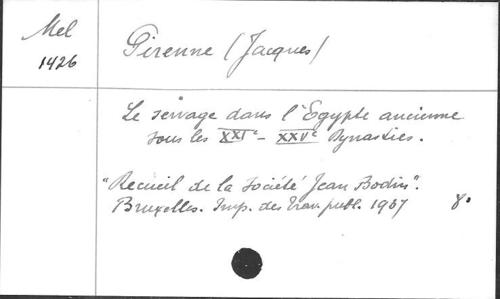 Mel
1426
Pirenne (Jacques)
Le servage dans l'Egypte ancienne
sous les XXIe - XXVe Dynasties.
"Recueil de la Société Jean Bodin".
Bruxelles. Imp. des Trav. publ. 1937 8°